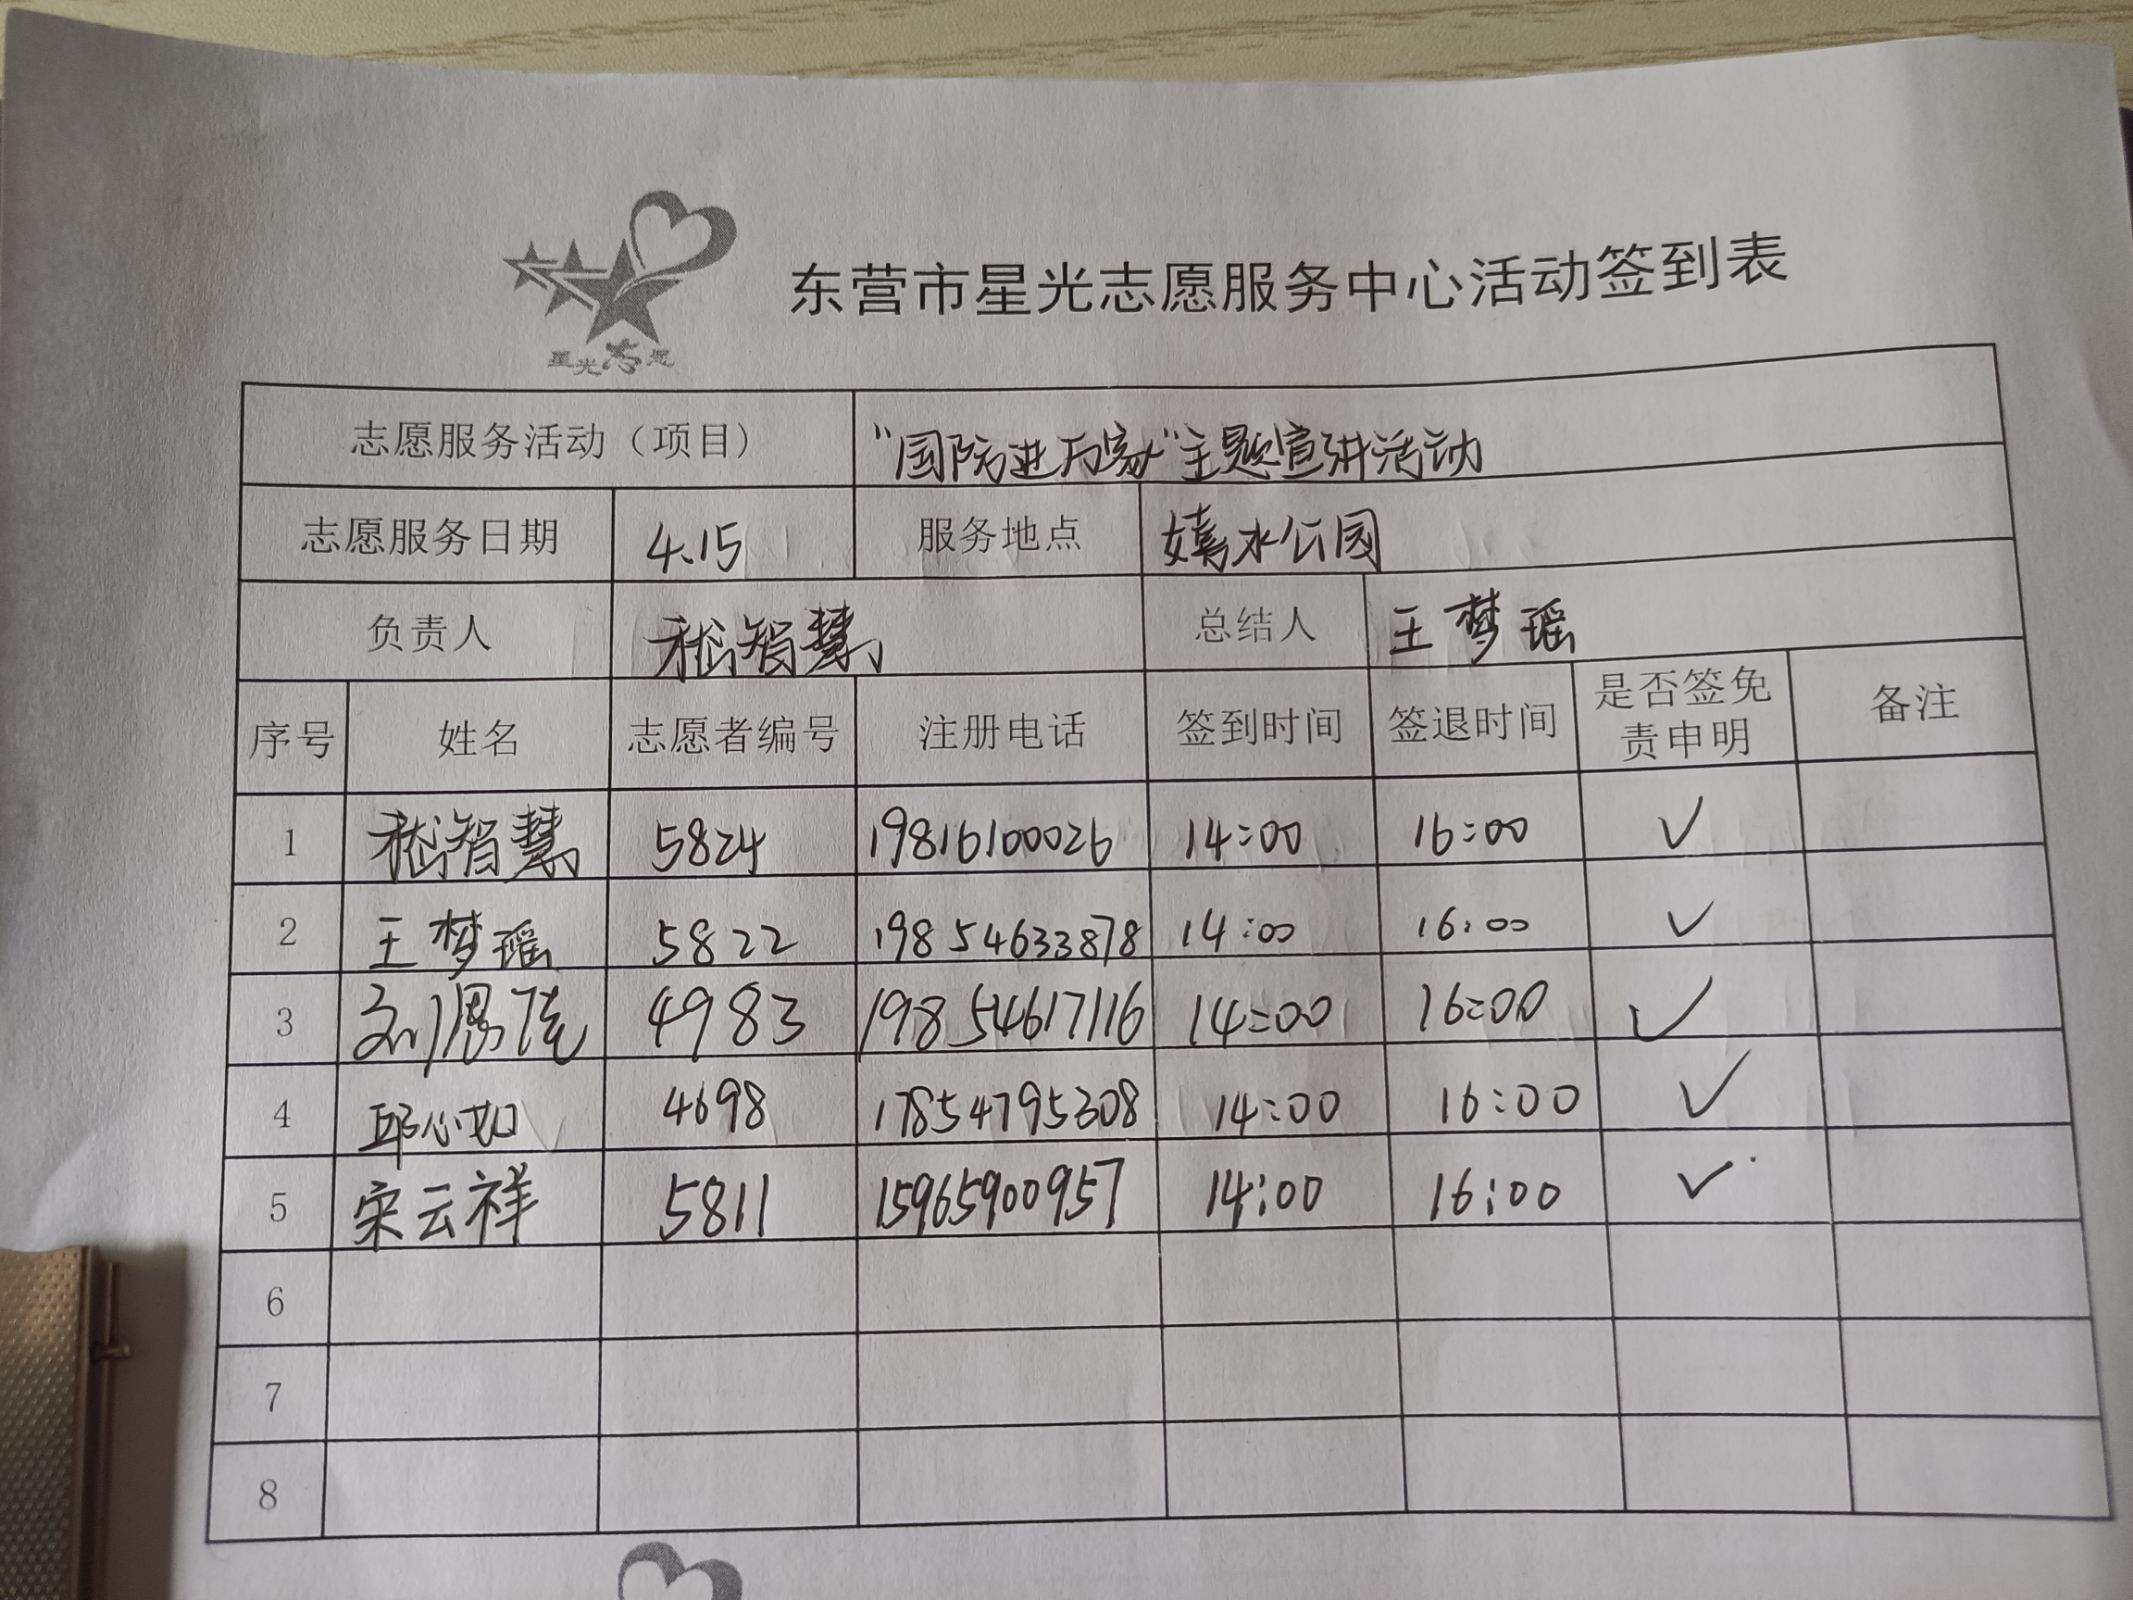 星光志愿
东营市星光志愿服务中心活动签到表
志愿服务活动（项目） “国防进万家”主题宣讲活动
志愿服务日期 4.15 服务地点 嬉水公园
负责人 嵇智慧 总结人 王梦瑶
序号 姓名 志愿者编号 注册电话 签到时间 签退时间 是否签免责申明 备注
1 嵇智慧 5824 19816100026 14:00 16:00 ✓
2 王梦瑶 5822 19854633878 14:00 16:00 ✓
3 4983 19854617116 14:00 16:00 ✓
4 邱心如 4698 17854795308 14:00 16:00 ✓
5 宋云祥 5811 15965900957 14:00 16:00 ✓
6
7
8